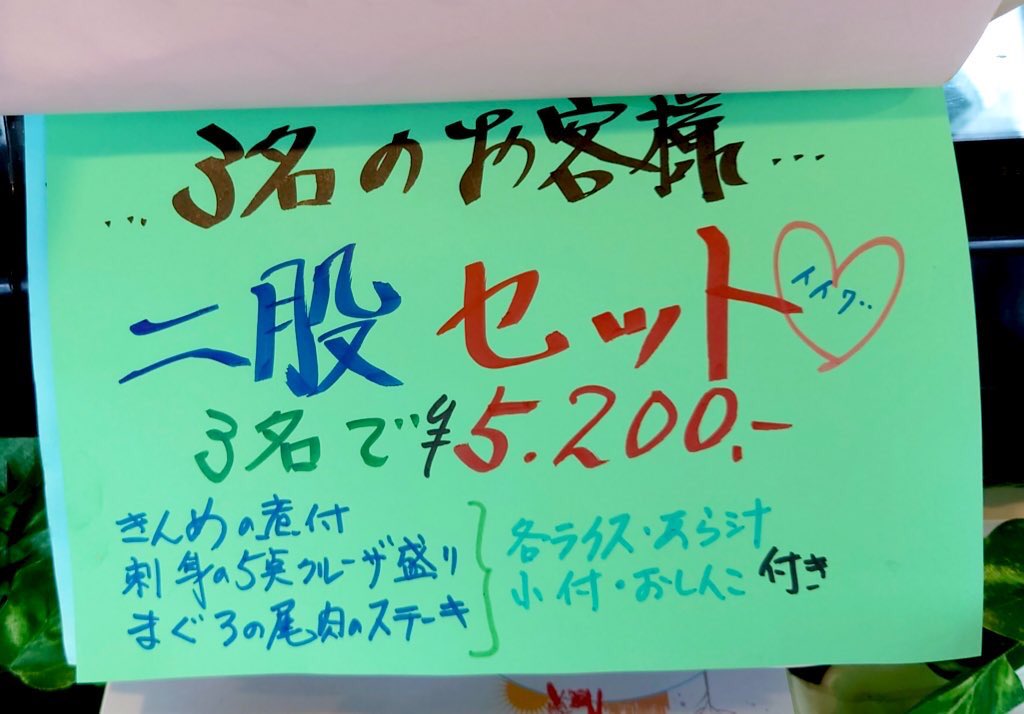 ...3名のお客様...
二股 セット
イイワ..
3名で¥5.200.-
きんめの煮付
刺身の5点クルーザ盛り
まぐろの尾肉のステーキ
各ライス・あら汁
小付・おしんこ 付き